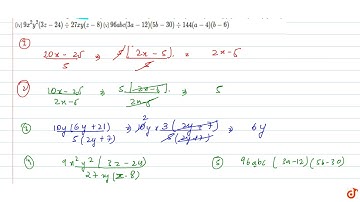 (iv) 9x²y²(3z − 24) ÷ 27xy(z − 8) (v) 96abc(3a − 12)(5b − 30) ÷ 144(a − 4)(b − 6)
①
(10x − 25)/5 ⇒ 5(2x − 5)/5 ⇒ 2x − 5
②
(10x − 25)/(2x − 5) ⇒ 5(2x − 5)/(2x − 5) ⇒ 5
③
10y(6y + 21)/5(2y + 7) ⇒ 2 10y × 3(2y + 7)/5(2y + 7) ⇒ 6y
④ 9x²y²(3z − 24)/27xy(z − 8) ⑤ 96abc(3a − 12)(5b − 30)